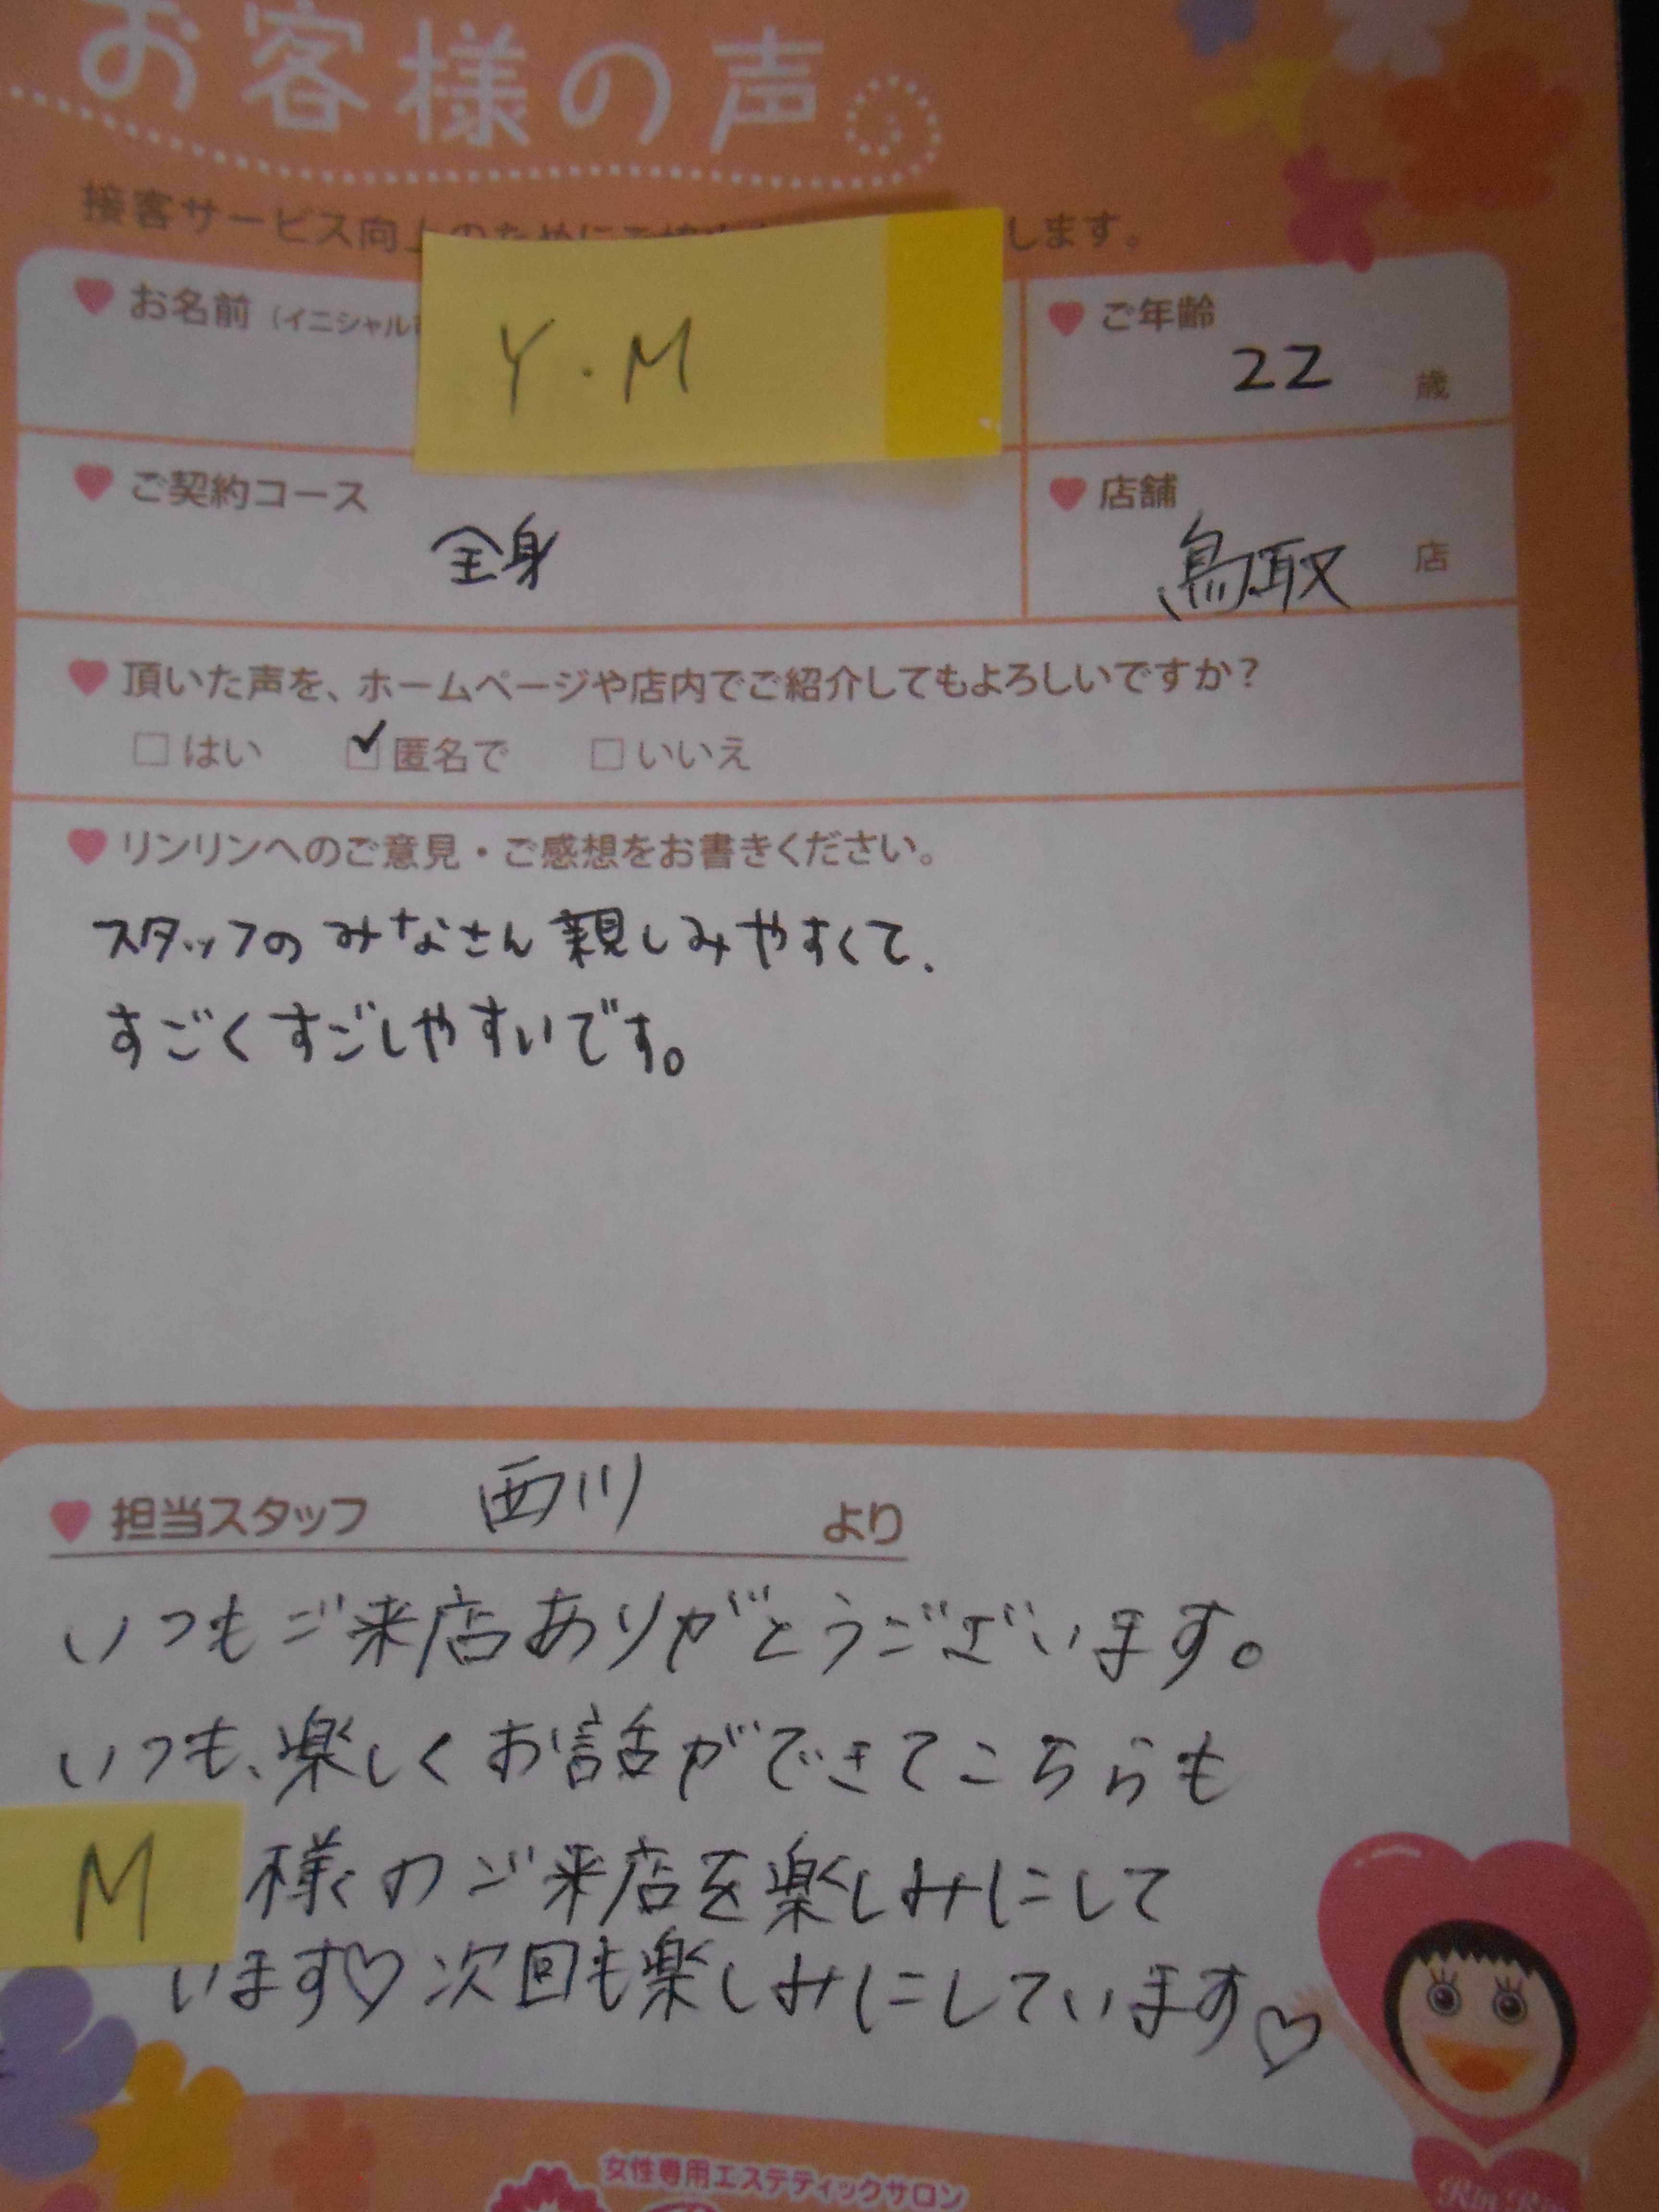 お客様の声
接客サービス向上のためにご します。
お名前（イニシャル
Y・M
ご年齢
22 歳
ご契約コース
全身
店舗
鳥取 店
頂いた声を、ホームページや店内でご紹介してもよろしいですか？
□はい ☑匿名で □いいえ
リンリンへのご意見・ご感想をお書きください。
スタッフのみなさん親しみやすくて、
すごくすごしやすいです。
担当スタッフ 西川 より
いつもご来店ありがとうございます。
いつも、楽しくお話ができてこちらも
M 様のご来店を楽しみにして
います♡次回も楽しみにしています♡
女性専用エステティックサロン
Rin Rin